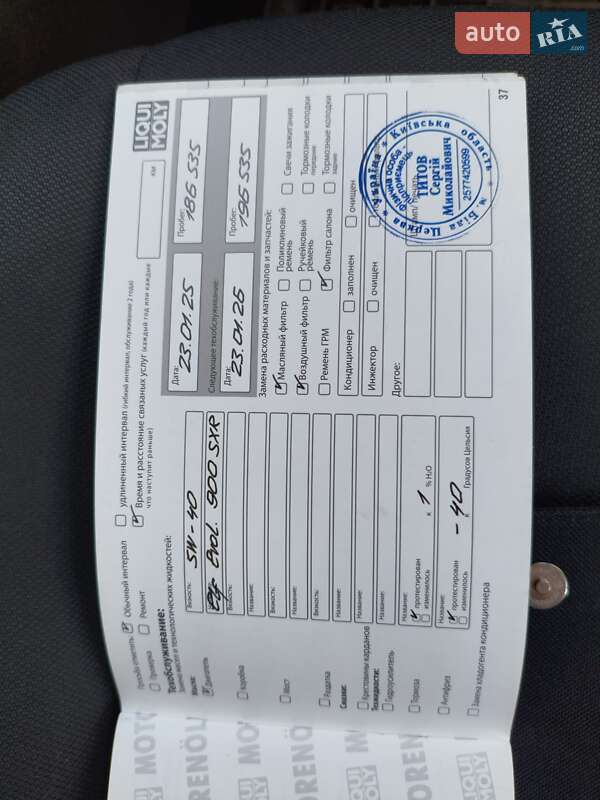 auto RIA.com
LIQUI MOLY
KM
Просьба отметить:
Обычный интервал
удлиненный интервал (гибкий интервал обслуживания 2 года)
Проверка
Ремонт
Время и расстояние связаных услуг (каждый год или каждые
что наступит раньше)
Техобслуживание:
Замена масел и технологических жидкостей:
Масла:
Двигатель
Вязкость: 5W-40
Evol. 900 SXR
Вязкость:
Коробка
Название:
Вязкость:
Мост
Название:
Вязкость:
Раздатка
Название:
Смазки:
Название:
Крестовины карданов
Техжидкости:
Название:
Гидроусилитель
Название:
Тормоза
протестирован
изменилось
x 1 % H₂O
Название:
Антифриз
протестирован
изменилось
x -40 Градусов Цельсия
Замена хладогента кондиционера
Дата: 23.01.25
Пробег: 186 535
Следующее техобслуживание:
Дата: 23.01.26
Пробег: 196 535
Замена расходных материалов и запчастей:
Масляный фильтр
Поликлиновый ремень
Свечи зажигания
Воздушный фильтр
Ручейковый ремень
Тормозные колодки передние
Ремень ГРМ
Фильтр салона
Тормозные колодки задние
Кондиционер
заполнен
очищен
Инжектор
очищен
Другое:
Україна * Київська область * м. Біла Церква *
Фізична особа - підприємець
ТИТОВ
Сергій
Миколайович
2577420599
37
LIQUI MOLY
MOTORENÖL